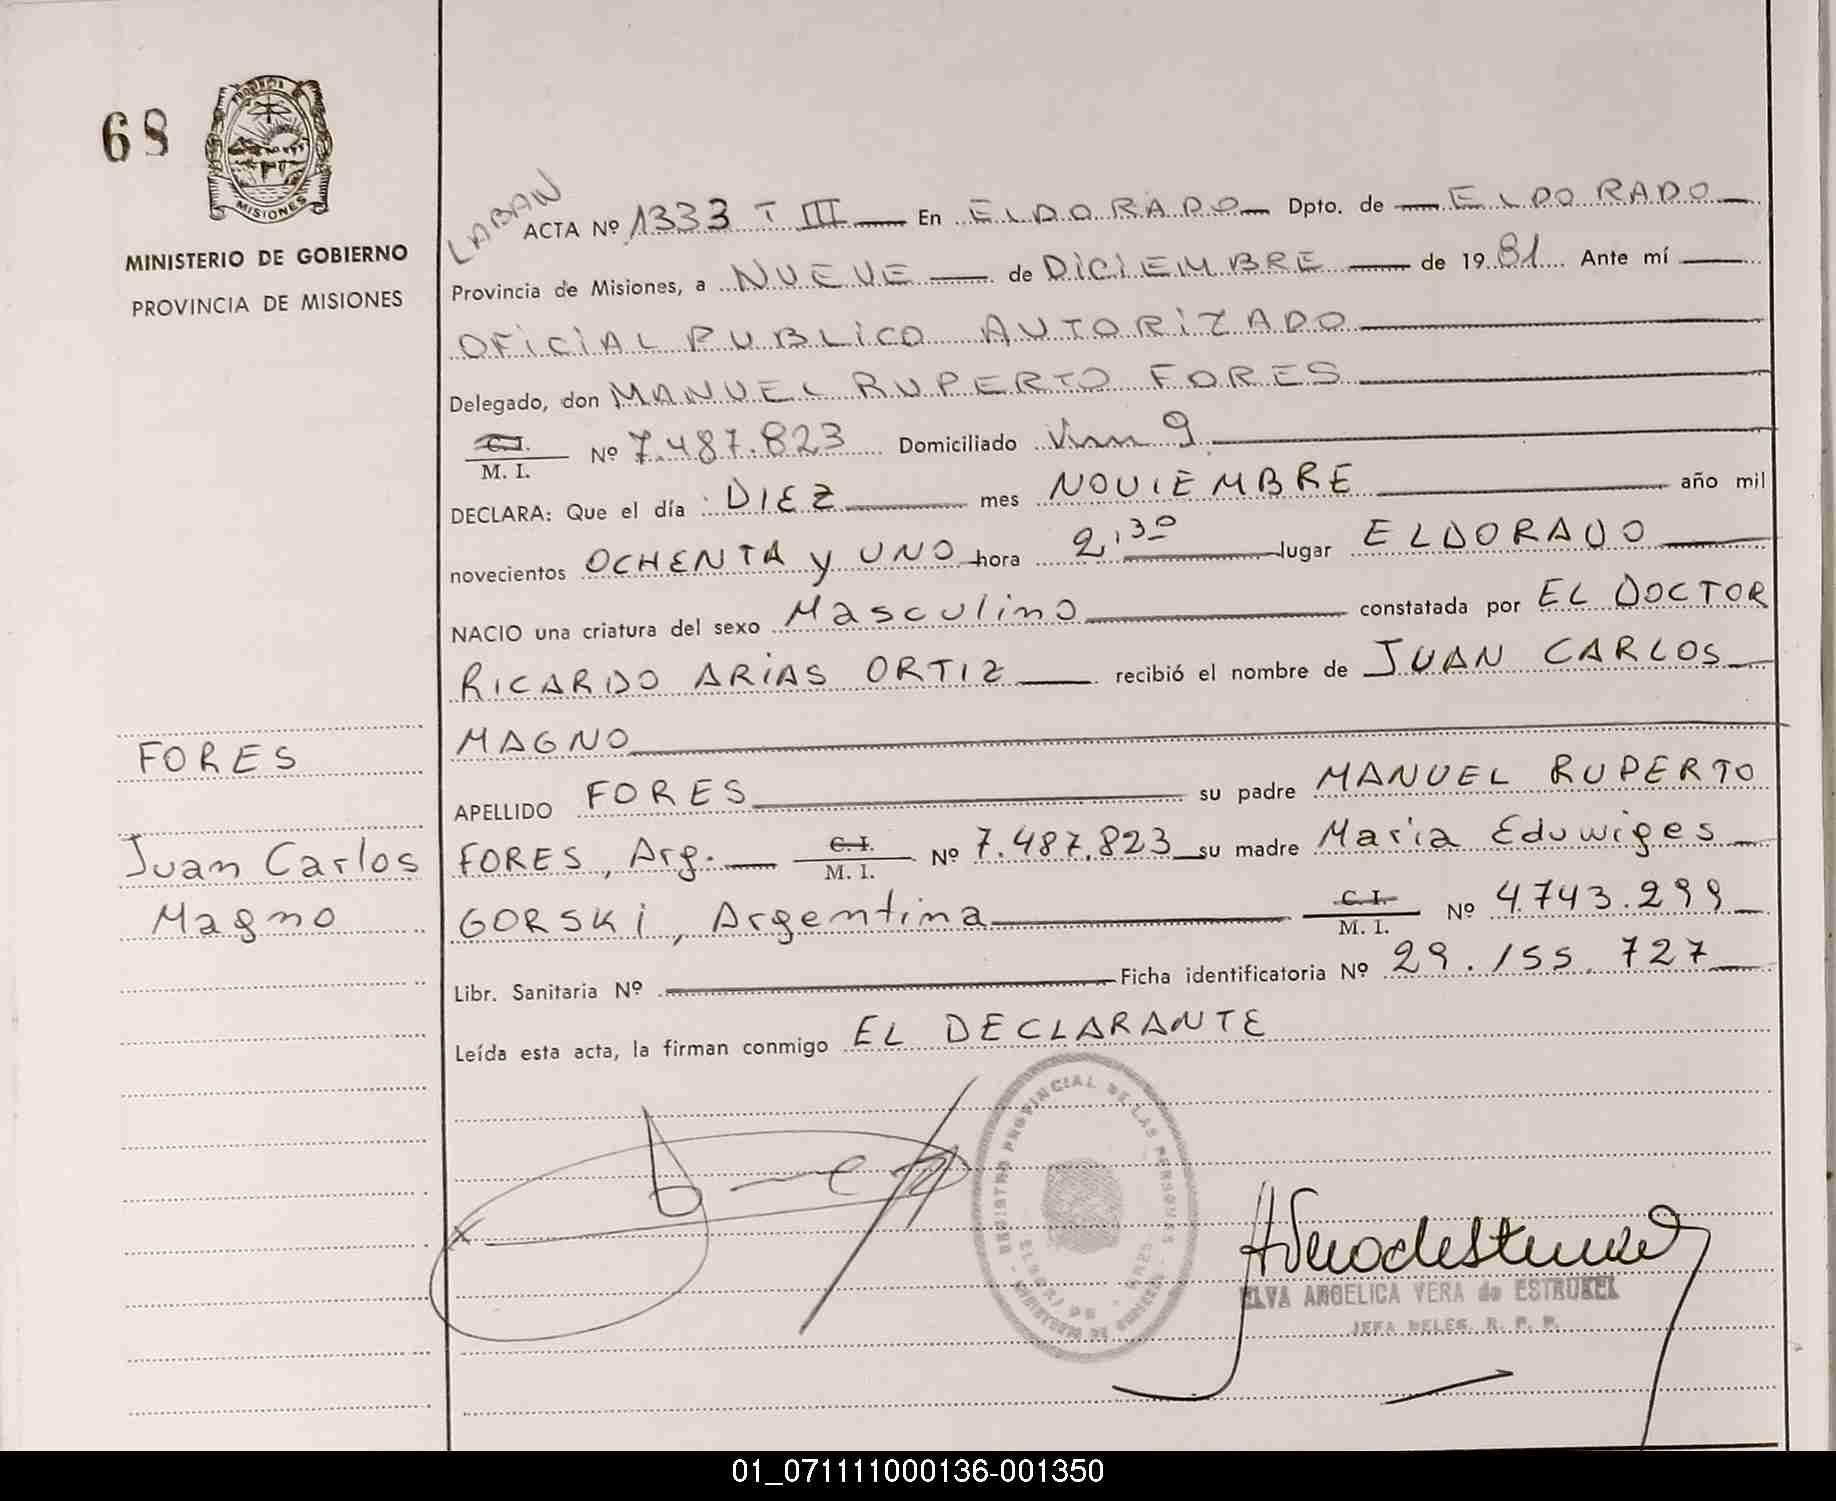 68
PROVINCIA
MISIONES
MINISTERIO DE GOBIERNO
PROVINCIA DE MISIONES
LABAN
ACTA Nº 1333 T III En ELDORADO Dpto. de ELDORADO
Provincia de Misiones, a NUEVE de DICIEMBRE de 1981 Ante mí
OFICIAL PUBLICO AUTORIZADO
Delegado, don MANUEL RUPERTO FORES
C.I.
M. I. Nº 7.487.823 Domiciliado Km 9
DECLARA: Que el día DIEZ mes NOVIEMBRE año mil
novecientos OCHENTA y UNO hora 2,30 lugar ELDORADO
NACIO una criatura del sexo Masculino constatada por EL DOCTOR
RICARDO ARIAS ORTIZ recibió el nombre de JUAN CARLOS
MAGNO
APELLIDO FORES su padre MANUEL RUPERTO
FORES, Arg. C.I. M. I. Nº 7.487.823 su madre Maria Eduwiges
GORSKI, Argentina C.I. M. I. Nº 4.743.299
Libr. Sanitaria Nº Ficha identificatoria Nº 29.155.727
Leída esta acta, la firman conmigo EL DECLARANTE
FORES
Juan Carlos
Magno
REGISTRO PROVINCIAL DE LAS PERSONAS
MINISTERIO DE GOBIERNO
ELDORADO
ELVA ANGELICA VERA de ESTRUKEL
JEFA DELEG. R. P. P.
01_071111000136-001350